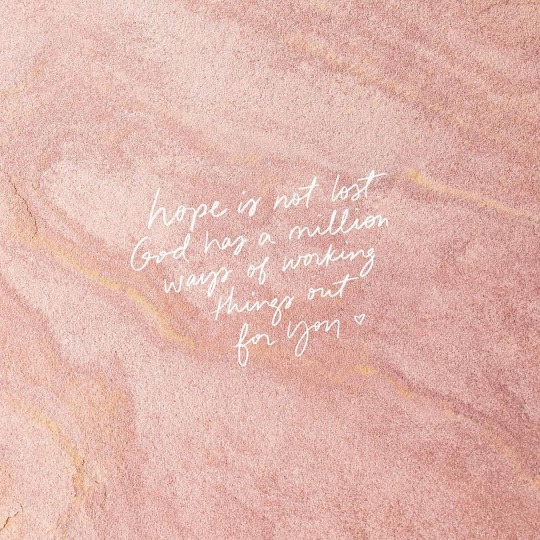 hope is not lost
God has a million
ways of working
things out
for you ♡